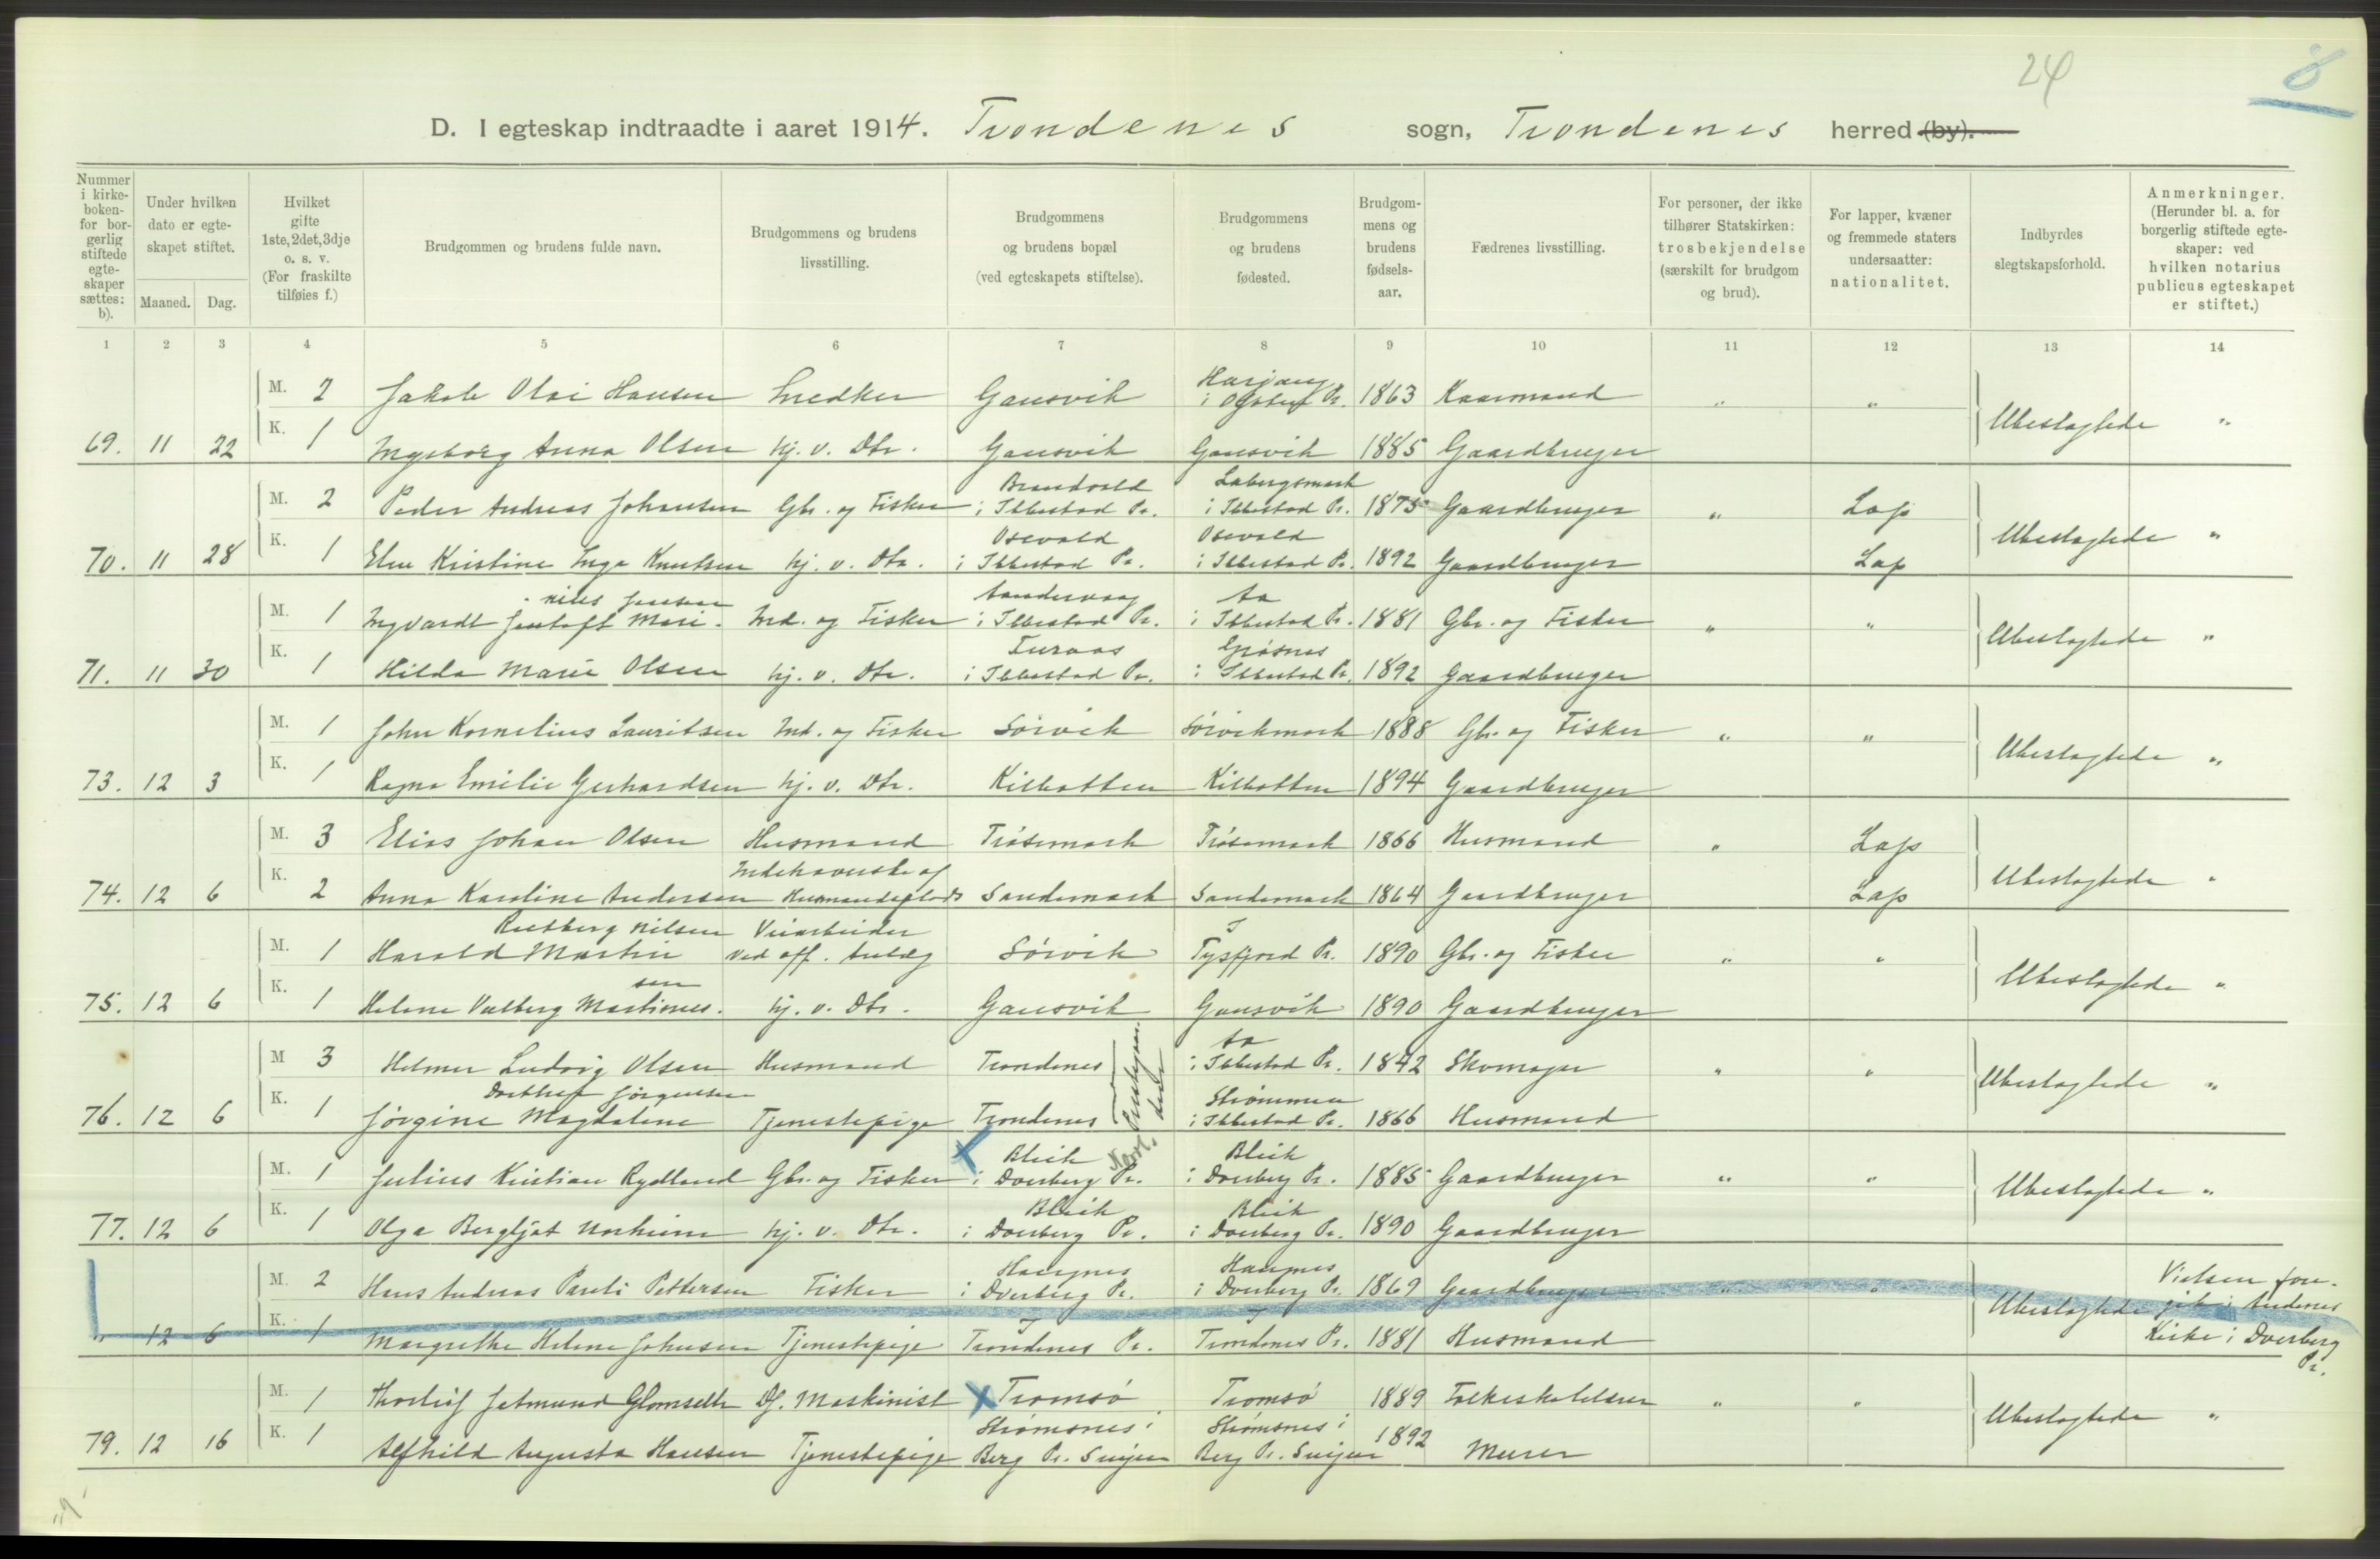 24
8
D. I egteskap indtraadte i aaret 1914. Trondenes sogn, Trondenes herred (by).
Nummer i kirkeboken- for borgerlig stiftede egteskaper sættes: b).
Under hvilken dato er egteskapet stiftet.
Maaned. Dag.
Hvilket gifte 1ste, 2det, 3dje o. s. v. (For fraskilte tilføies f.)
Brudgommen og brudens fulde navn.
Brudgommens og brudens livsstilling.
Brudgommens og brudens bopæl (ved egteskapets stiftelse).
Brudgommens og brudens fødested.
Brudgommens og brudens fødselsaar.
Fædrenes livsstilling.
For personer, der ikke tilhører Statskirken: trosbekjendelse (særskilt for brudgom og brud).
For lapper, kvæner og fremmede staters undersaatter: nationalitet.
Indbyrdes slegtskapsforhold.
Anmerkninger. (Herunder bl. a. for borgerlig stiftede egteskaper: ved hvilken notarius publicus egteskapet er stiftet.)
1 2 3 4 5 6 7 8 9 10 11 12 13 14
M. 2 Jakob Olai Hansen Snedker Gausvik i Ofoten Pr. 1863 " "
69. 11 22 K. 1 Ingeborg Anna Olsen hj. v. Dtr. Gausvik Gausvik 1885 Gaardbruger Ubeslægtede "
M. 2 Peder Andreas Johansen Gbr. og Fisker Brandvold i Ibbestad Pr. Labergsmark i Ibbestad Pr. 1875 Gaardbruger " Lap
70. 11 28 K. 1 Elen Kristine Inga Knutsen hj. v. Dtr. Osevold i Ibbestad Pr. Osevold i Ibbestad Pr. 1892 Gaardbruger Lap Ubeslægtede "
M. 1 Ingvardt Jentoft Mari-nius Jensen Ind. og Fisker i Ibbestad Pr. Aa i Ibbestad Pr. 1881 Gbr. og Fisker " "
71. 11 30 K. 1 Hilda Marie Olsen hj. v. Dtr. Furaas i Ibbestad Pr. Grøsnes i Ibbestad Pr. 1892 Gaardbruger Ubeslægtede "
M. 1 John Kornelius Lauritsen Ind. og Fisker Sørvik Sørvikmark 1888 Gbr. og Fisker " "
73. 12 3 K. 1 Ragna Emilie Gerhardsen hj. v. Dtr. Kilbotten Kilbotten 1894 Gaardbruger Ubeslægtede "
M. 3 Elias Johan Olsen Husmand Trøsemark Trøsemark 1866 Husmand " Lap
74. 12 6 K. 2 Anna Karoline Andersen Indehaverske af Husmandsplads Sandemark Sandemark 1864 Gaardbruger Lap Ubeslægtede "
M. 1 Harald Martin Reitberg Nilsen Veiarbeider ved off. Anlæg Sørvik Tysfjord Pr. 1890 Gbr. og Fisker " "
75. 12 6 K. 1 Helene Valberg Martinussen hj. v. Dtr. Gausvik Gausvik 1890 Gaardbruger Ubeslægtede "
M 3 Helmer Ludvig Olsen Husmand Trondenes Aa i Ibbestad Pr. 1842 Skomager " "
76. 12 6 K. 1 Jørgine Magdalene Dorthea Jørgensen Tjenestepige Trondenes Strømmen i Ibbestad Pr. 1866 Husmand Ubeslægtede "
M. 1 Julius Kristian Rydland Gbr. og Fisker Bleik i Dverberg Pr. Bleik i Dverberg Pr. 1885 Gaardbruger " "
77. 12 6 K. 1 Olga Bergljot Norheim hj. v. Dtr. Bleik i Dverberg Pr. Bleik i Dverberg Pr. 1890 Gaardbruger Ubeslægtede "
M. 2 Hans Andreas Pareli Pettersen Fisker Haugnes i Dverberg Pr. Haugnes i Dverberg Pr. 1869 Gaardbruger " "
" 12 6 K. 1 Margrethe Helene Johnsen Tjenestepige Trondenes Pr. Trondenes Pr. 1881 Husmand Ubeslægtede Vielsen foregik i Andenes Kirke i Dverberg Pr.
M. 1 Thorleif Jetmund Glomseth Df. Maskinist Tromsø Tromsø 1889 Folkeskolelærer " "
79. 12 16 K. 1 Alfhild Augusta Hansen Tjenestepige Strømsnes i Berg Pr. Senjen Strømsnes i Berg Pr. Senjen 1892 Murer Ubeslægtede "